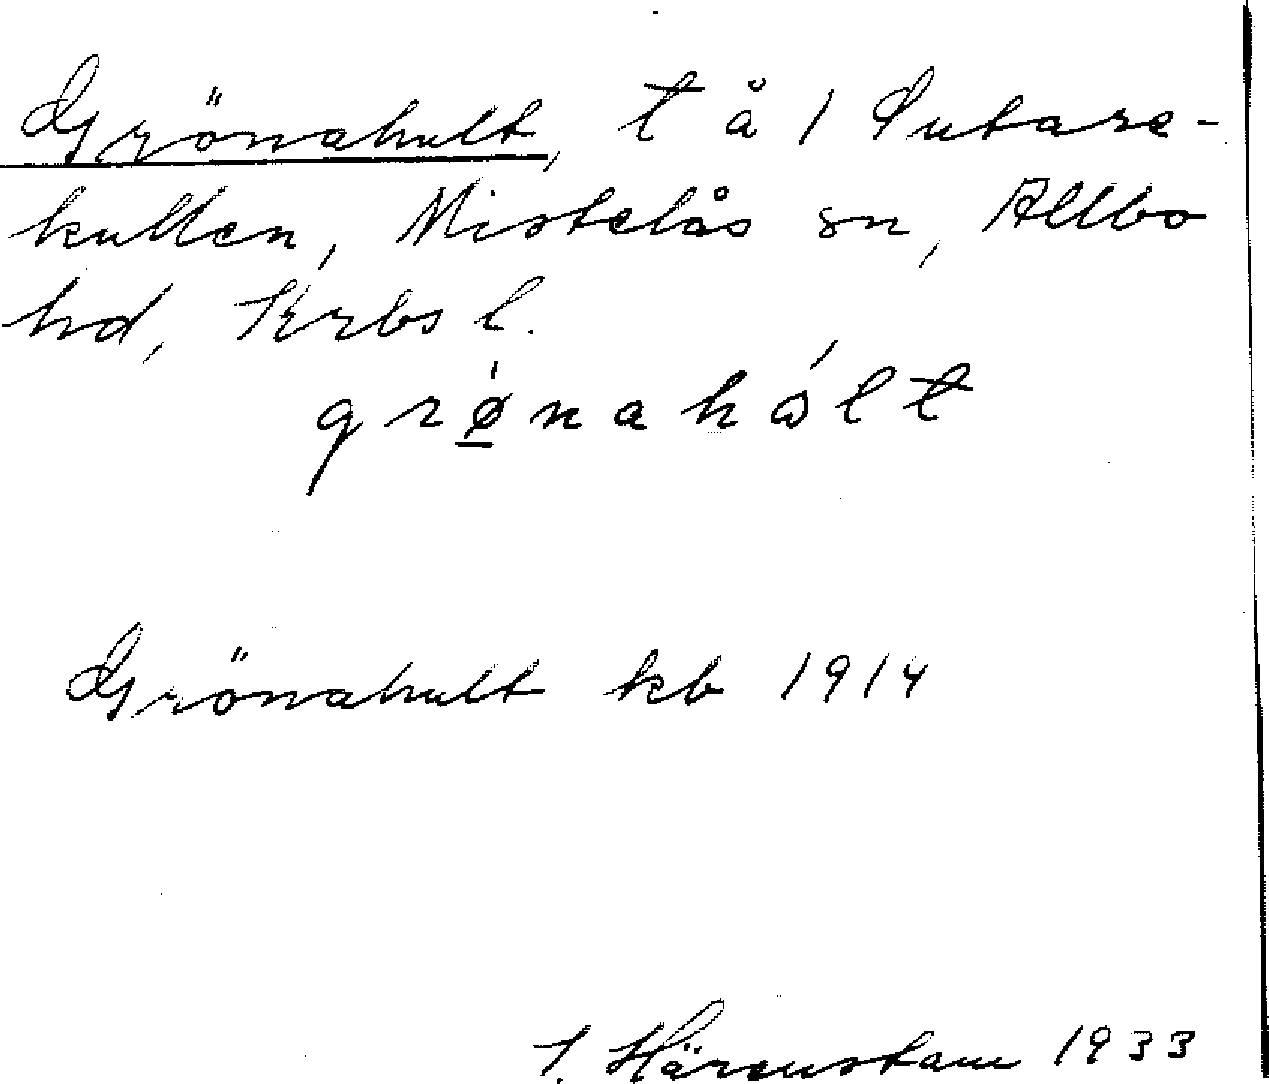 Grönahult, t å 1 Sutare-
kullen, Mistelås sn, Allbo
hd, Krbs l.
grǿ̱nahɷ́lt
Grönahult kb 1914
J. Härenstam 1933